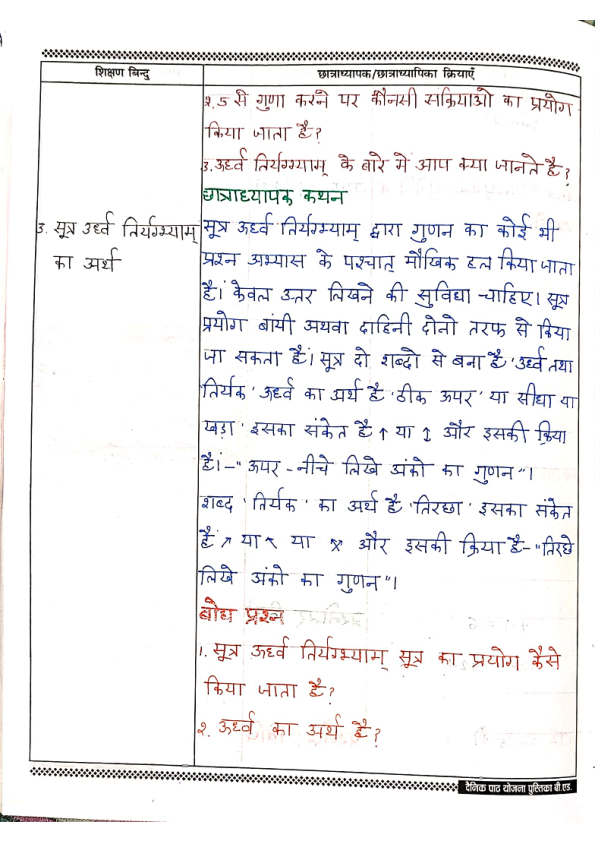 शिक्षण बिन्दु
छात्राध्यापक/छात्राध्यापिका क्रियाएँ
२.5 से गुणा करने पर कौनसी सक्रियाओ का प्रयोग
किया जाता है?
३.ऊर्ध्व तिर्यग्भ्याम् के बारे में आप क्या जानते है?
छात्राध्यापक कथन
३. सूत्र उर्ध्व तिर्यग्भ्याम्
का अर्थ
सूत्र ऊर्ध्व तिर्यग्भ्याम् द्वारा गुणन का कोई भी
प्रश्न अभ्यास के पश्चात् मौखिक हल किया जाता
है। केवल उत्तर लिखने की सुविधा चाहिए। सूत्र
प्रयोग बांयी अथवा दाहिनी दोनो तरफ से किया
जा सकता है। सूत्र दो शब्दो से बना है 'उर्ध्व तथा
'तिर्यक' ऊर्ध्व का अर्थ है 'ठीक ऊपर' या सीधा या
खड़ा' इसका संकेत है ↑ या ↕ और इसकी क्रिया
है।-"ऊपर-नीचे लिखे अंको का गुणन"।
शब्द 'तिर्यक' का अर्थ है 'तिरछा' इसका संकेत
है ↗ या ↖ या और इसकी क्रिया है-"तिरछे
लिखे अंको का गुणन"।
बोध प्रश्न
१. सूत्र ऊर्ध्व तिर्यग्भ्याम् सूत्र का प्रयोग कैसे
किया जाता है?
२. ऊर्ध्व का अर्थ है?
दैनिक पाठ योजना पुस्तिका बी.एड.